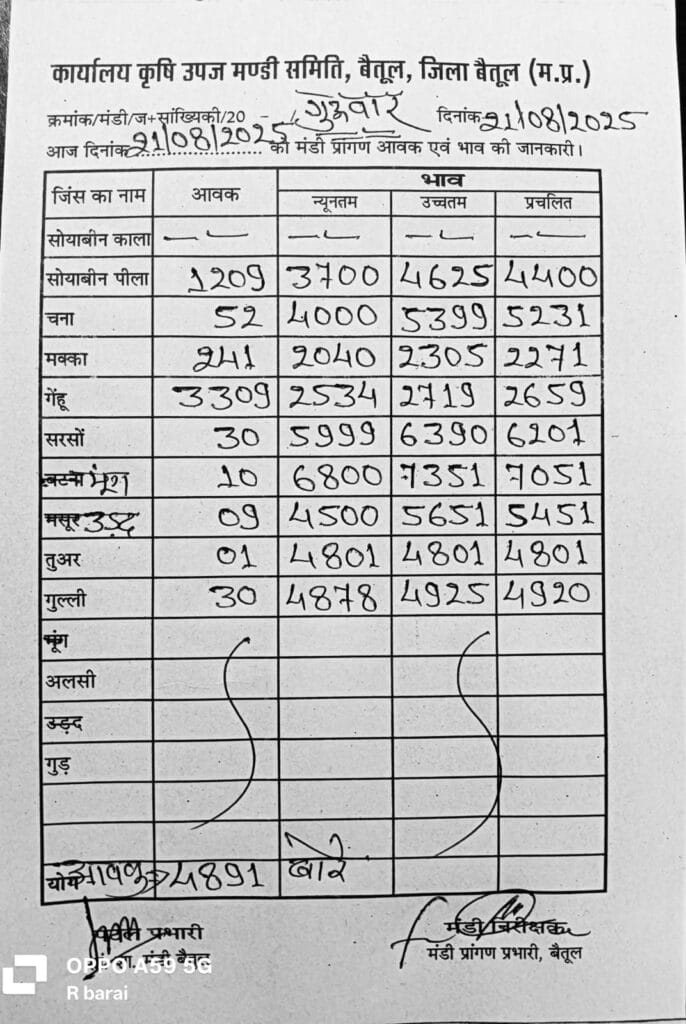 कार्यालय कृषि उपज मण्डी समिति, बैतूल, जिला बैतूल (म.प्र.)
क्रमांक/मंडी/ज+सांख्यिकी/20 - गुरुवार दिनांक 21/08/2025
आज दिनांक 21/08/2025 को मंडी प्रांगण आवक एवं भाव की जानकारी।
जिंस का नाम आवक भाव
न्यूनतम उच्चतम प्रचलित
सोयाबीन काला -- -- -- --
सोयाबीन पीला 1209 3700 4625 4400
चना 52 4000 5399 5231
मक्का 241 2040 2305 2271
गेंहू 3309 2534 2719 2659
सरसों 30 5999 6390 6201
बटना मूंग 10 6800 7351 7051
मसूर उड़द 09 4500 5651 5451
तुअर 01 4801 4801 4801
गुल्ली 30 4878 4925 4920
मूंग
अलसी
उड़द
गुड़
योग आवक 4891 बोरे
प्रभारी मंडी निरीक्षक
मंडी बैतूल मंडी प्रांगण प्रभारी, बैतूल
OPPO A59 5G
R barai